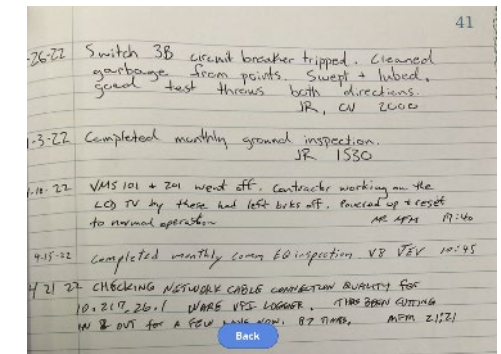 41
-26-22 Switch 3B circuit breaker tripped. Cleaned
garbage from points. Swept + lubed.
good test throws both directions.
JR, CV 2000
-3-22 Completed monthly ground inspection.
JR 1530
-10-22 VMS 101 + 201 went off. Contractor working on the
LCD TV by these had left bkrs off. Powered up + reset
to normal operation MFM 17:40
4-15-22 Completed monthly comm EQ inspection VB JEV 10:45
4 21 22 CHECKING NETWORK CABLE CONNECTION QUALITY FOR
10.217.26.1 WARE VPI LOGGER. THIS BEEN CUTTING
IN & OUT FOR A FEW DAYS NOW. 87 TIMES. MFM 21:21
Back